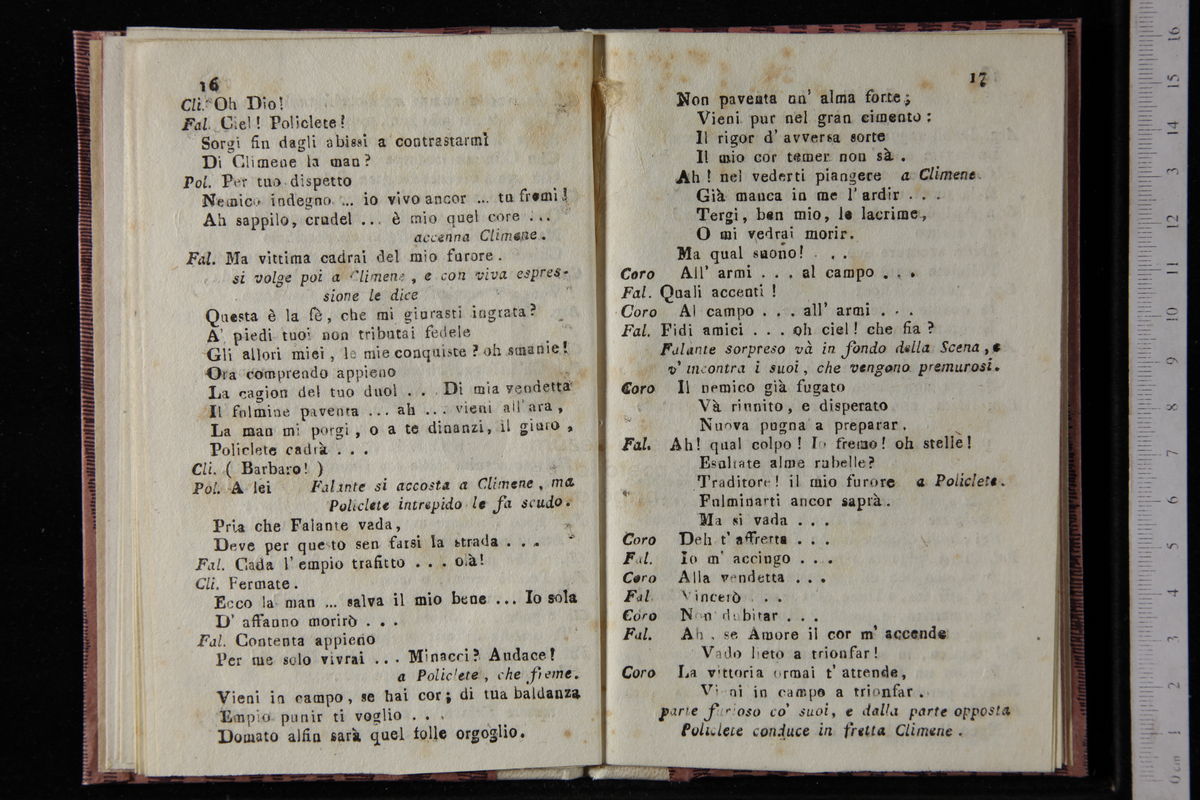 16
Cli. Oh Dio!
Fal. Ciel! Policlete!
Sorgi fin dagli abissi a contrastarmi
Di Climene la man?
Pol. Per tuo dispetto
Nemico indegno ... io vivo ancor ... tu fremi!
Ah sappilo, crudel ... è mio quel core ...
accenna Climene.
Fal. Ma vittima cadrai del mio furore.
si volge poi a Climene, e con viva espres-
sione le dice
Questa è la fè, che mi giurasti ingrata?
A' piedi tuoi non tributai fedele
Gli allori miei, le mie conquiste? oh smanie!
Ora comprendo appieno
La cagion del tuo duol . . . Di mia vendetta
Il fulmine paventa ... ah ... vieni all'ara,
La man mi porgi, o a te dinanzi, il giuro,
Policlete cadrà . . .
Cli. ( Barbaro! )
Pol. A lei Falante si accosta a Climene, ma
Policlete intrepido le fa scudo.
Pria che Falante vada,
Deve per questo sen farsi la strada . . .
Fal. Cada l'empio trafitto . . . olà!
Cli. Fermate.
Ecco la man ... salva il mio bene ... Io sola
D' affanno morirò . . .
Fal. Contenta appieno
Per me solo vivrai ... Minacci? Audace!
a Policlete, che freme.
Vieni in campo, se hai cor; di tua baldanza
Empio punir ti voglio . . .
Domato alfin sarà quel folle orgoglio.
17
Non paventa un' alma forte;
Vieni pur nel gran cimento:
Il rigor d' avversa sorte
Il mio cor temer non sà.
Ah! nel vederti piangere a Climene.
Già manca in me l'ardir . . .
Tergi, ben mio, le lacrime,
O mi vedrai morir.
Ma qual suono! . . .
Coro All' armi . . . al campo . . .
Fal. Quali accenti !
Coro Al campo . . . all' armi . . .
Fal. Fidi amici . . . oh ciel! che fia?
Falante sorpreso và in fondo della Scena, e
v' incontra i suoi, che vengono premurosi.
Coro Il nemico già fugato
Và riunito, e disperato
Nuova pugna a preparar.
Fal. Ah! qual colpo! Io fremo! oh stelle!
Esultate alme rubelle?
Traditore! il mio furore a Policlete.
Fulminarti ancor saprà.
Ma si vada . . .
Coro Deh t' affretta . . .
Fal. Io m' accingo . . .
Coro Alla vendetta . . .
Fal Vincerò . . .
Coro Non dubitar . . .
Fal. Ah, se Amore il cor m' accende
Vado lieto a trionfar!
Coro La vittoria ormai t' attende,
Vieni in campo a trionfar.
parte furioso co' suoi, e dalla parte opposta
Policlete conduce in fretta Climene.
0 cm 1 2 3 4 5 6 7 8 9 10 11 12 13 14 15 16